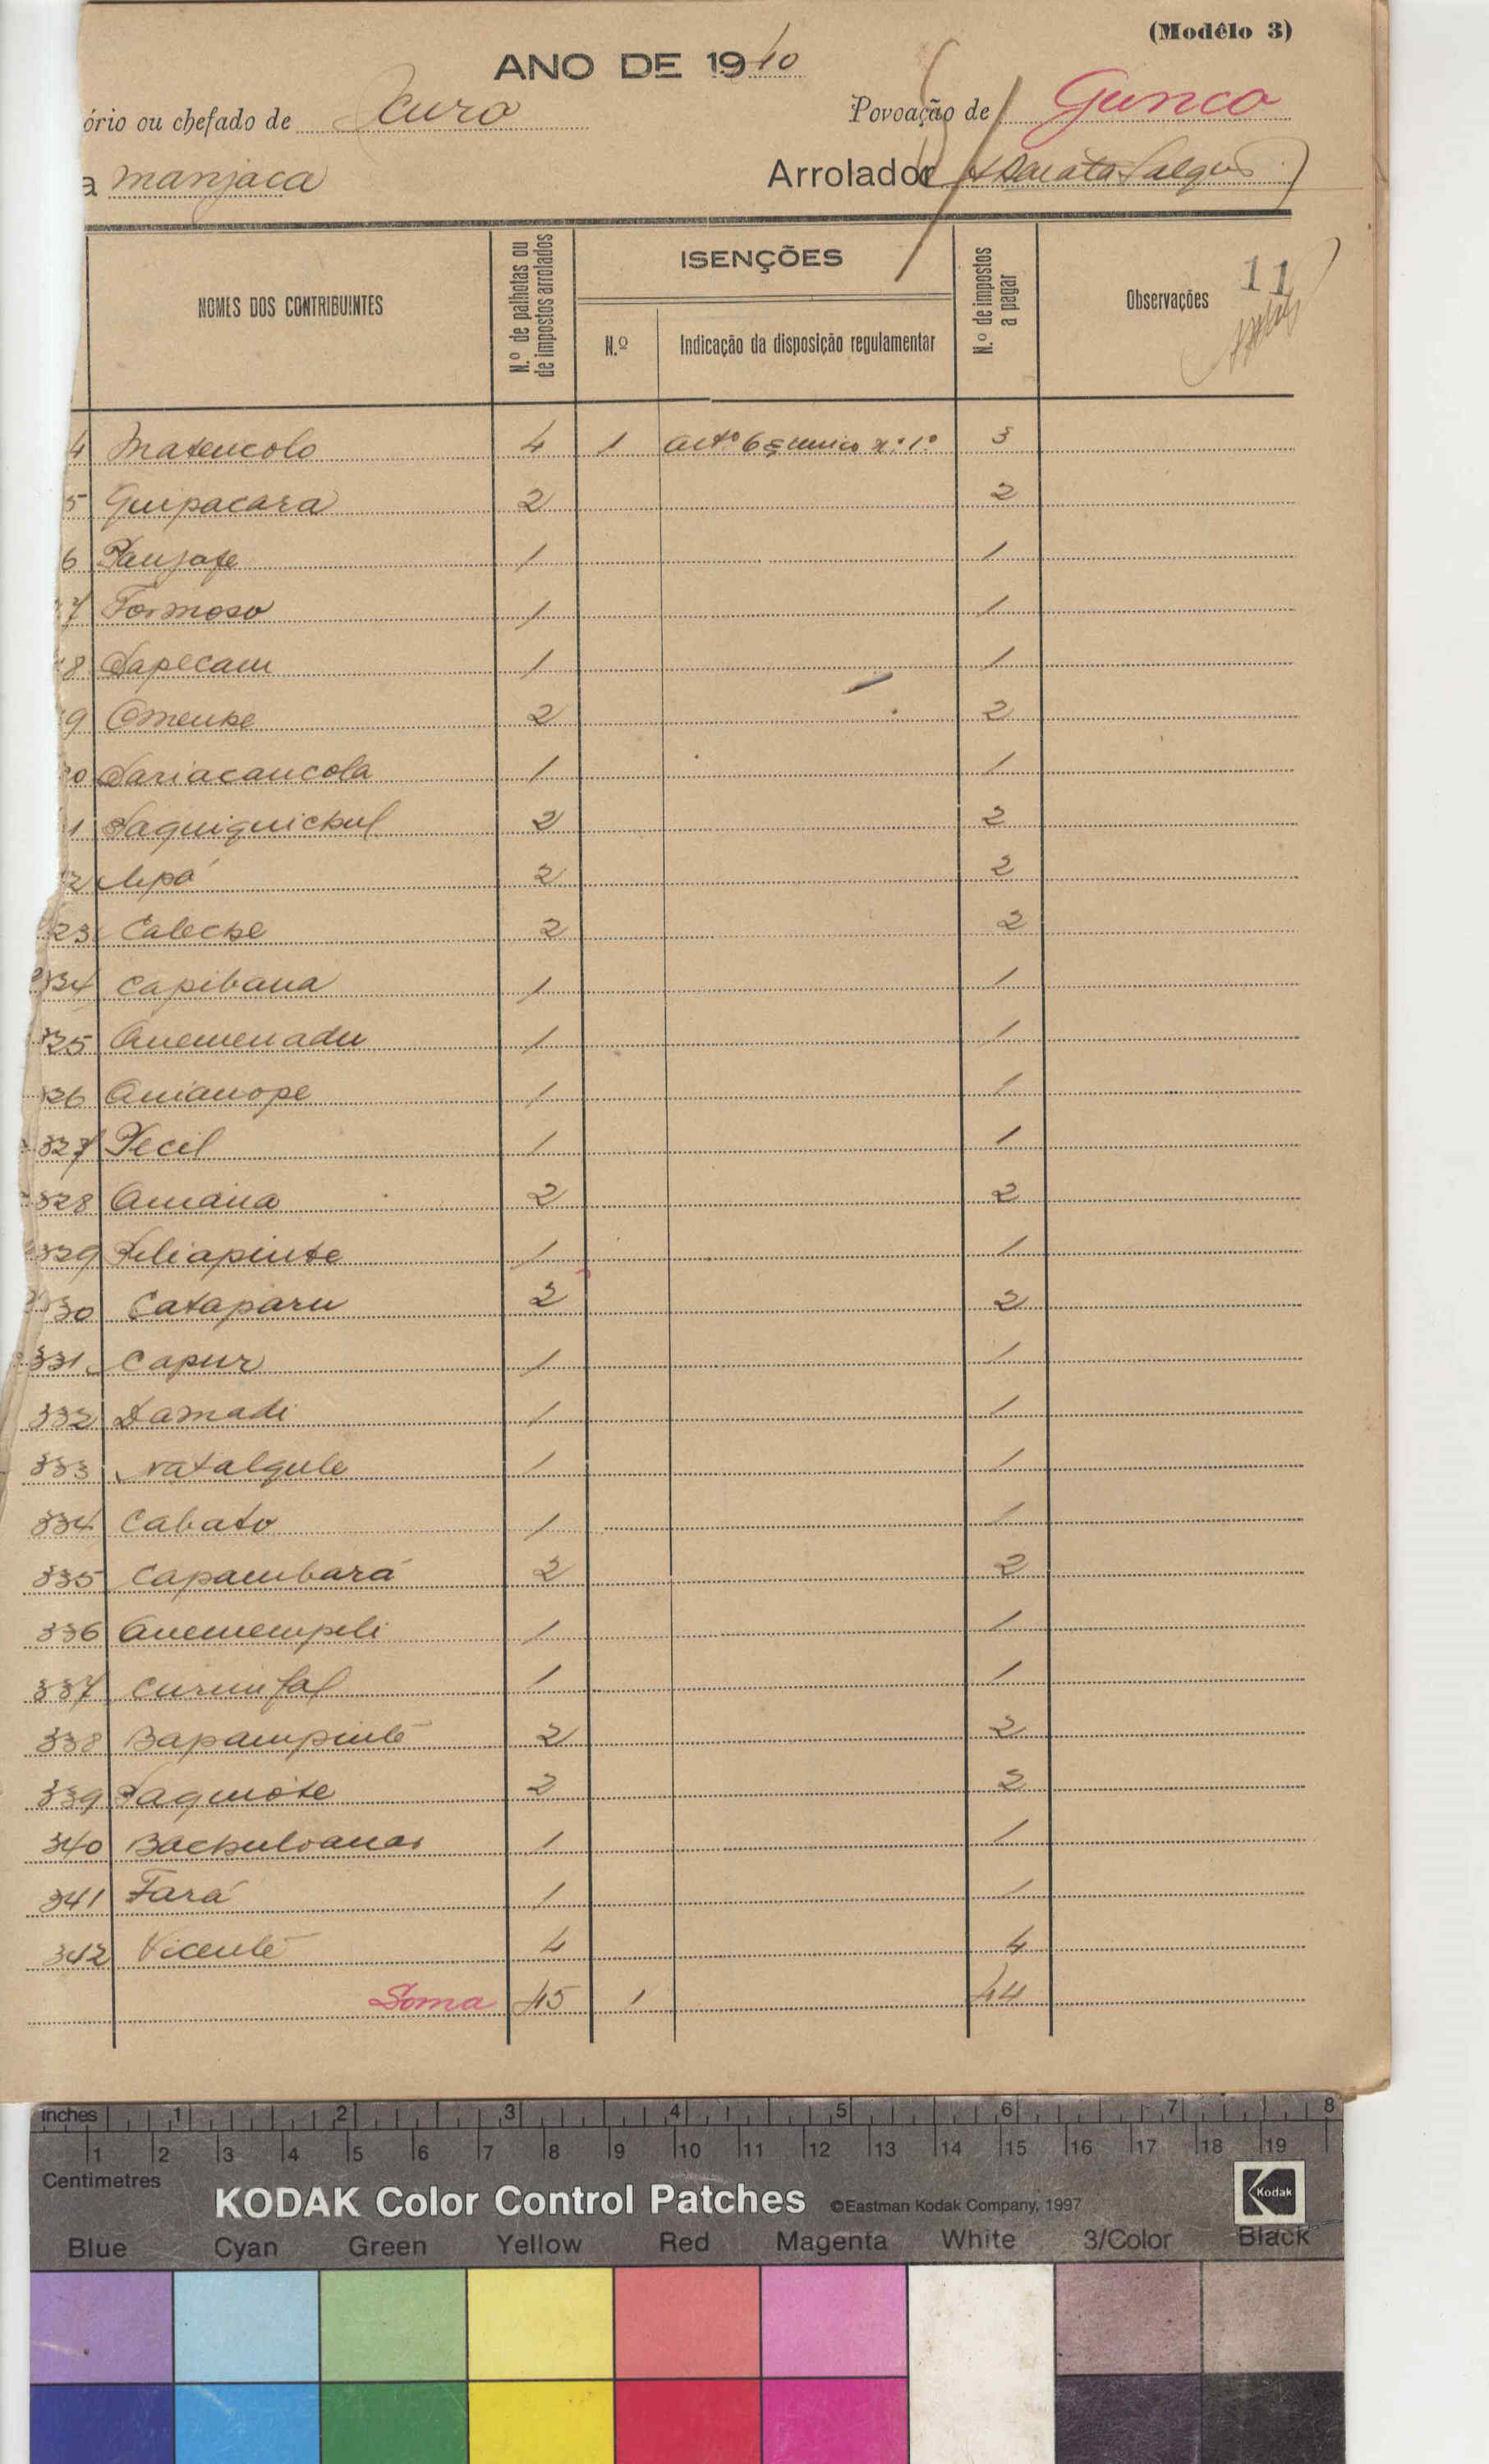 (Modêlo 3)
ANO DE 1940
ório ou chefado de Jcuro Povoação de Gunco
a manjaca Arrolador
NOMES DOS CONTRIBUINTES
N.º de palhotas ou de impostos arrolados
ISENÇÕES
N.º
Indicação da disposição regulamentar
N.º de impostos a pagar
Observações
11
4 Matencolo 4 1 Artº 6 § unico n.º 1.º 3
5 Guipacara 2 2
6 Panjafe 1 1
7 Formoso 1 1
8 Sapecam 1 1
9 Omenke 2 2
0 Sariacancola 1 1
1 Saquiquichul 2 2
2 Upá 2 2
23 Caleche 2 2
324 Capibana 1 1
325 Anemenadu 1 1
326 Anianope 1 1
327 Pecil 1 1
328 Amana 2 2
329 Feliapinte 1 1
330 Cataparu 2 2
331 Capur 1 1
332 Damadi 1 1
333 Natalgule 1 1
334 Cabato 1 1
335 Capambará 2 2
336 Anemempeli 1 1
337 Curumfal 1 1
338 Bapampinte 2 2
339 Saquiote 2 2
340 Bachuloanas 1 1
341 Fará 1 1
342 Vicente 4 4
Soma 45 1 44
inches 1 2 3 4 5 6 7 8
1 2 3 4 5 6 7 8 9 10 11 12 13 14 15 16 17 18 19
Centimetres
KODAK Color Control Patches ©Eastman Kodak Company, 1997 Kodak
Blue Cyan Green Yellow Red Magenta White 3/Color Black